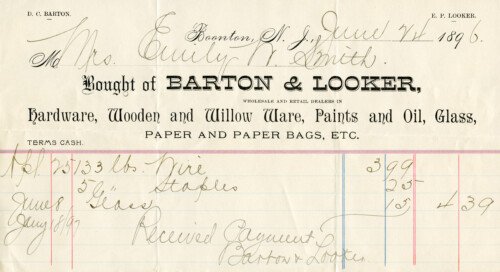 D. C. BARTON. E. P. LOOKER.
Boonton, N. J., June 24 1896.
M Mrs. Emily W. Smith.
Bought of BARTON & LOOKER,
WHOLESALE AND RETAIL DEALERS IN
Hardware, Wooden and Willow Ware, Paints and Oil, Glass,
PAPER AND PAPER BAGS, ETC.
TERMS CASH.
Apl 25 133 lbs. Wire 3 99
5 " Staples 25
June 8 Glass 15 4 39
Received Payment
Barton & Looker